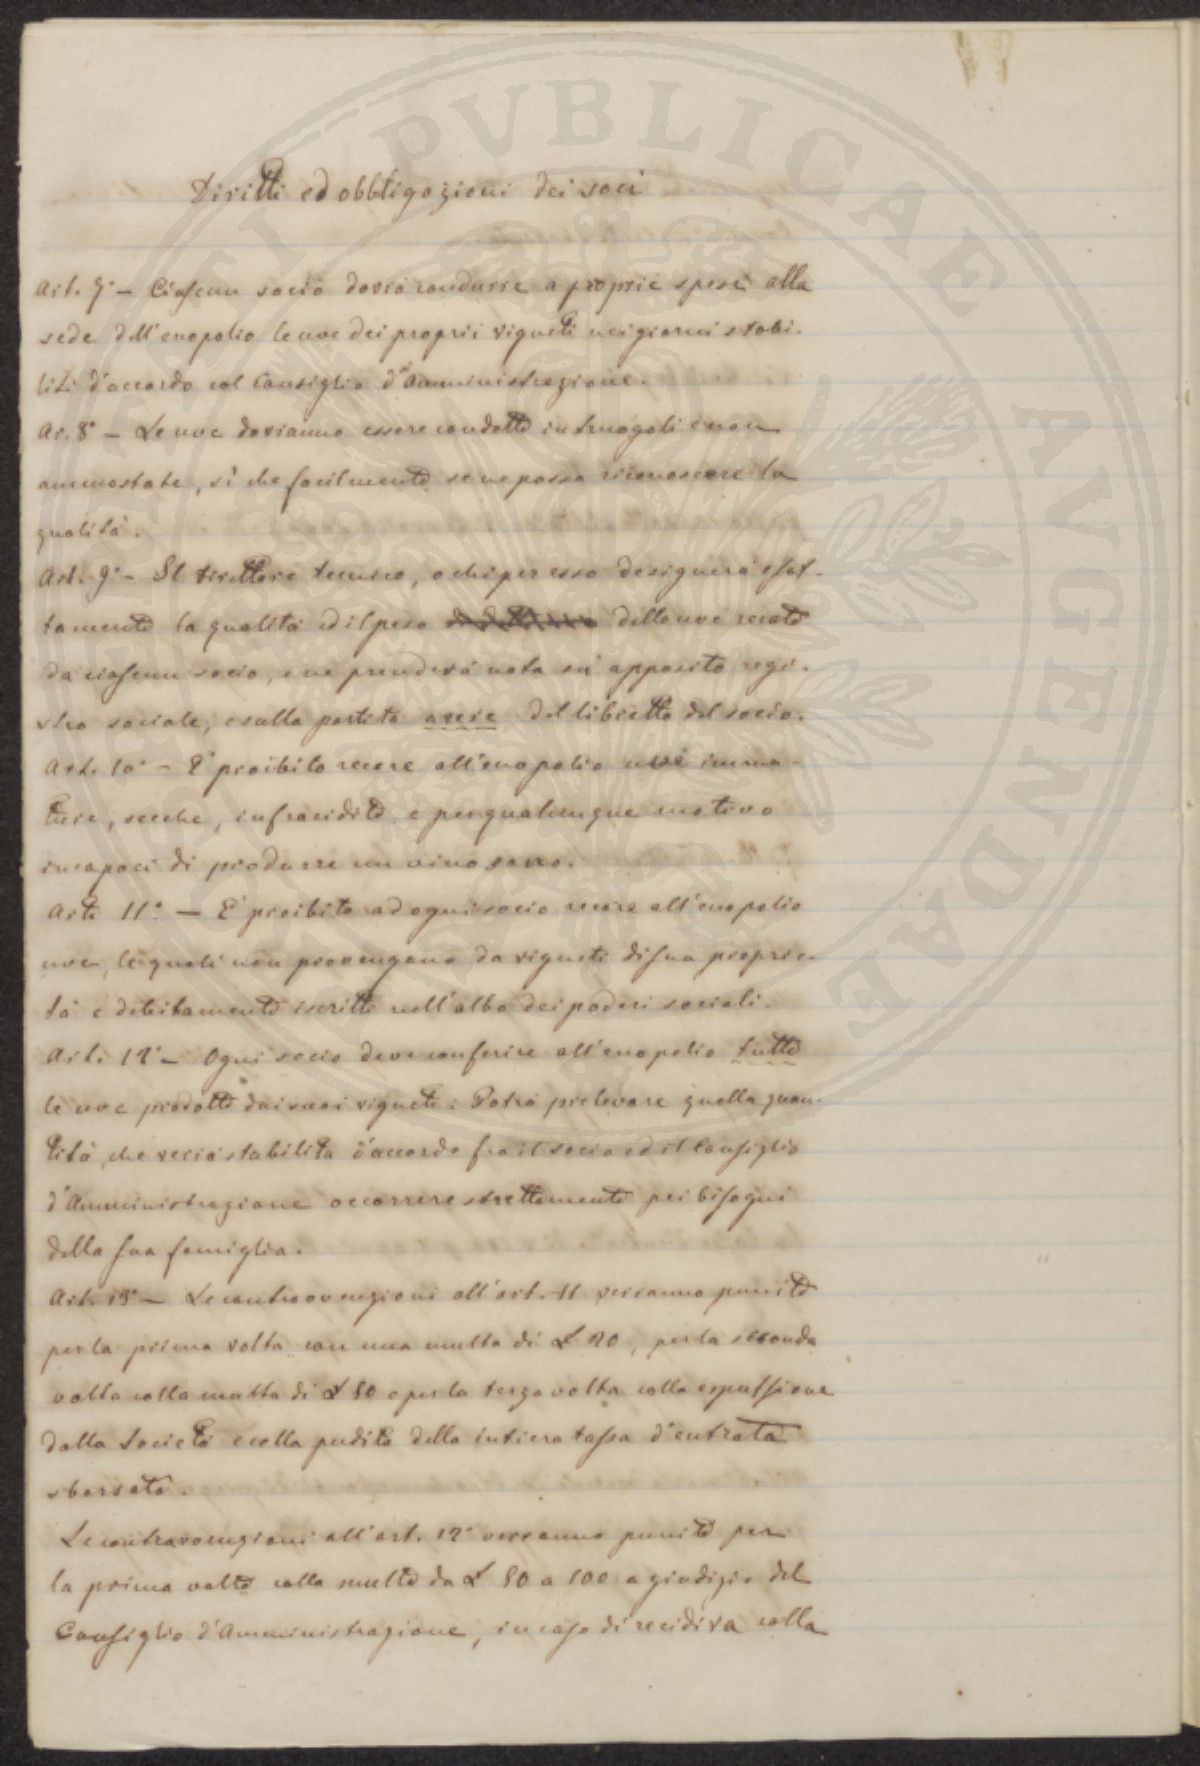 PUBLICAE AUGENDAE
Diritti ed obbligazioni dei soci
Art. 7° — Ciascun socio dovrà condurre a proprie spese alla
sede dell'enopolio le uve dei proprii vigneti nei giorni stabi-
liti d'accordo col Consiglio d'Amministrazione.
Ar. 8° — Le uve dovranno essere condotte in truogoli e non
ammostate, sì che facilmente se ne possa riconoscere la
qualità.
Art. 9° — Il direttore tecnico, o chi per esso designerà esat-
tamente la qualità ed il peso delle uve recate
da ciascun socio, e ne prenderà nota su apposito regi-
stro sociale, e sulla partita avere del libretto del socio.
Art. 10° — E' proibito recare all'enopolio uve imma-
ture, secche, infracidite e per qualunque motivo
incapaci di produrre un vino sano.
Art. 11° — E' proibito ad ogni socio recare all'enopolio
uve, le quali non provengano da vigneti di sua proprie-
tà e debitamente iscritti nell'albo dei poderi sociali.
Art. 12° — Ogni socio deve conferire all'enopolio tutte
le uve prodotte dai suoi vigneti. Potrà prelevare quella quan-
tità, che verrà stabilita d'accordo fra il socio ed il Consiglio
d'Amministrazione occorrere strettamente pei bisogni
della sua famiglia.
Art. 13° — Le contravvenzioni all'art. 11 verranno punite
per la prima volta con una multa di £ 20, per la seconda
volta colla multa di £ 50 e per la terza volta colla espulsione
dalla Società e colla perdita della intiera tassa d'entrata
sborsata.
Le contravvenzioni all'art. 12° verranno punite per
la prima volta colla multa da £ 50 a 100 a giudizio del
Consiglio d'Amministrazione, in caso di recidiva colla